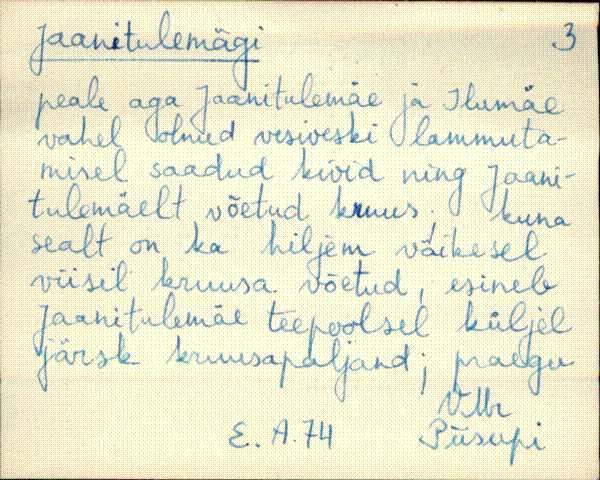 Jaanitulemägi 3
peale aga Jaanitulemäe ja Ilumäe
vahel olnud vesiveski lammuta-
misel saadud kivid ning Jaani-
tulemäelt võetud kruus; kuna
sealt on ka hiljem väikesel
viisil kruusa võetud, esineb
Jaanitulemäe teepoolsel küljel
järsk kruusapaljand; praegu
VMr
E. A. 74 Piisupi